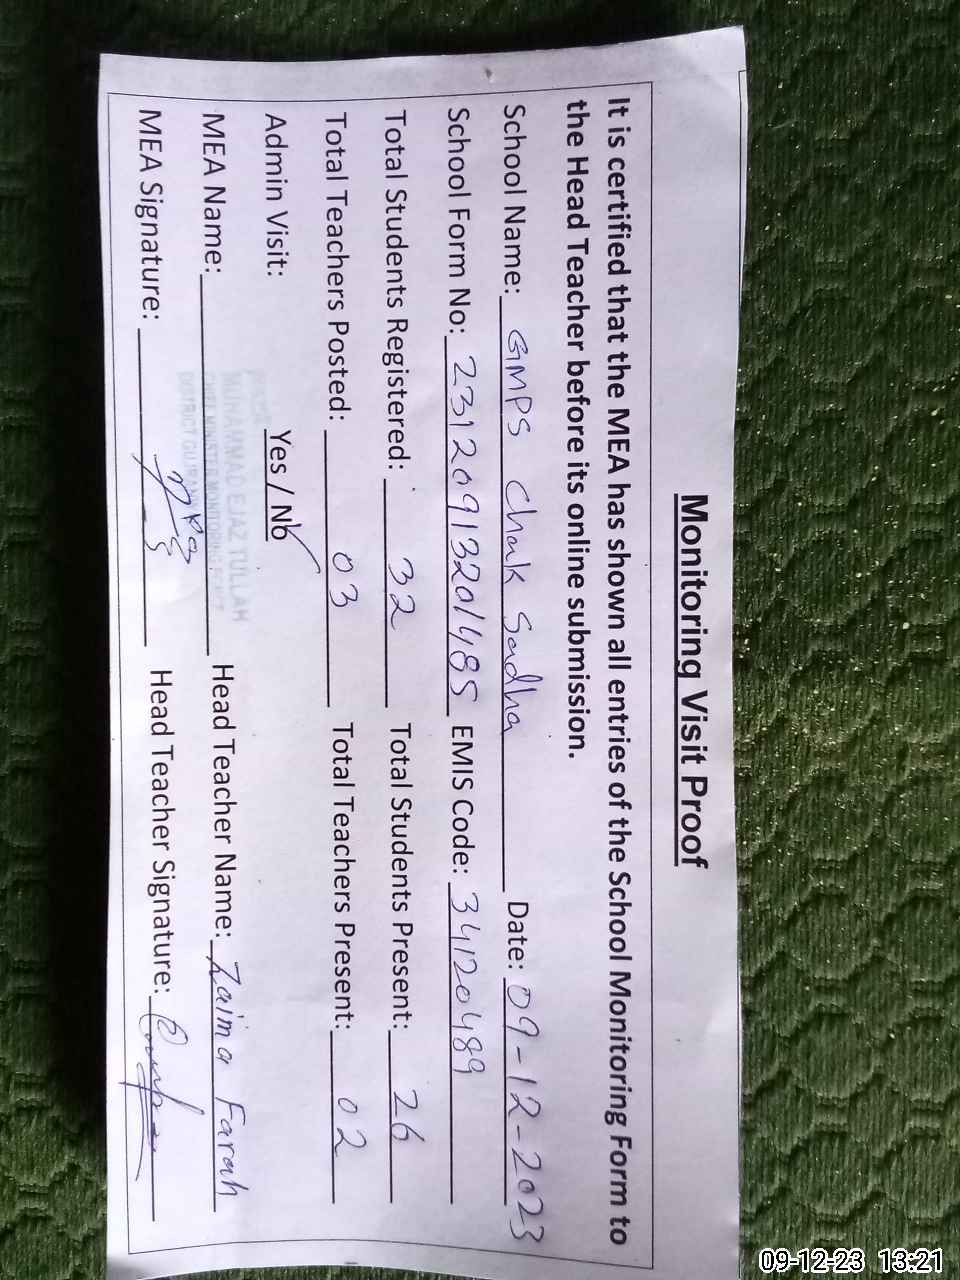 Monitoring Visit Proof
It is certified that the MEA has shown all entries of the School Monitoring Form to
the Head Teacher before its online submission.
School Name: GMPS Chak Sadha Date: 09-12-2023
School Form No: 23120913201485 EMIS Code: 34120489
Total Students Registered: 32 Total Students Present: 26
Total Teachers Posted: 03 Total Teachers Present: 02
Admin Visit: Yes / No
MUHAMMAD EJAZ TULLAH
CHIEF MINISTER MONITORING
DISTRICT
MEA Name: Head Teacher Name: Zaima Farah
MEA Signature: Head Teacher Signature:
09-12-23 13:21